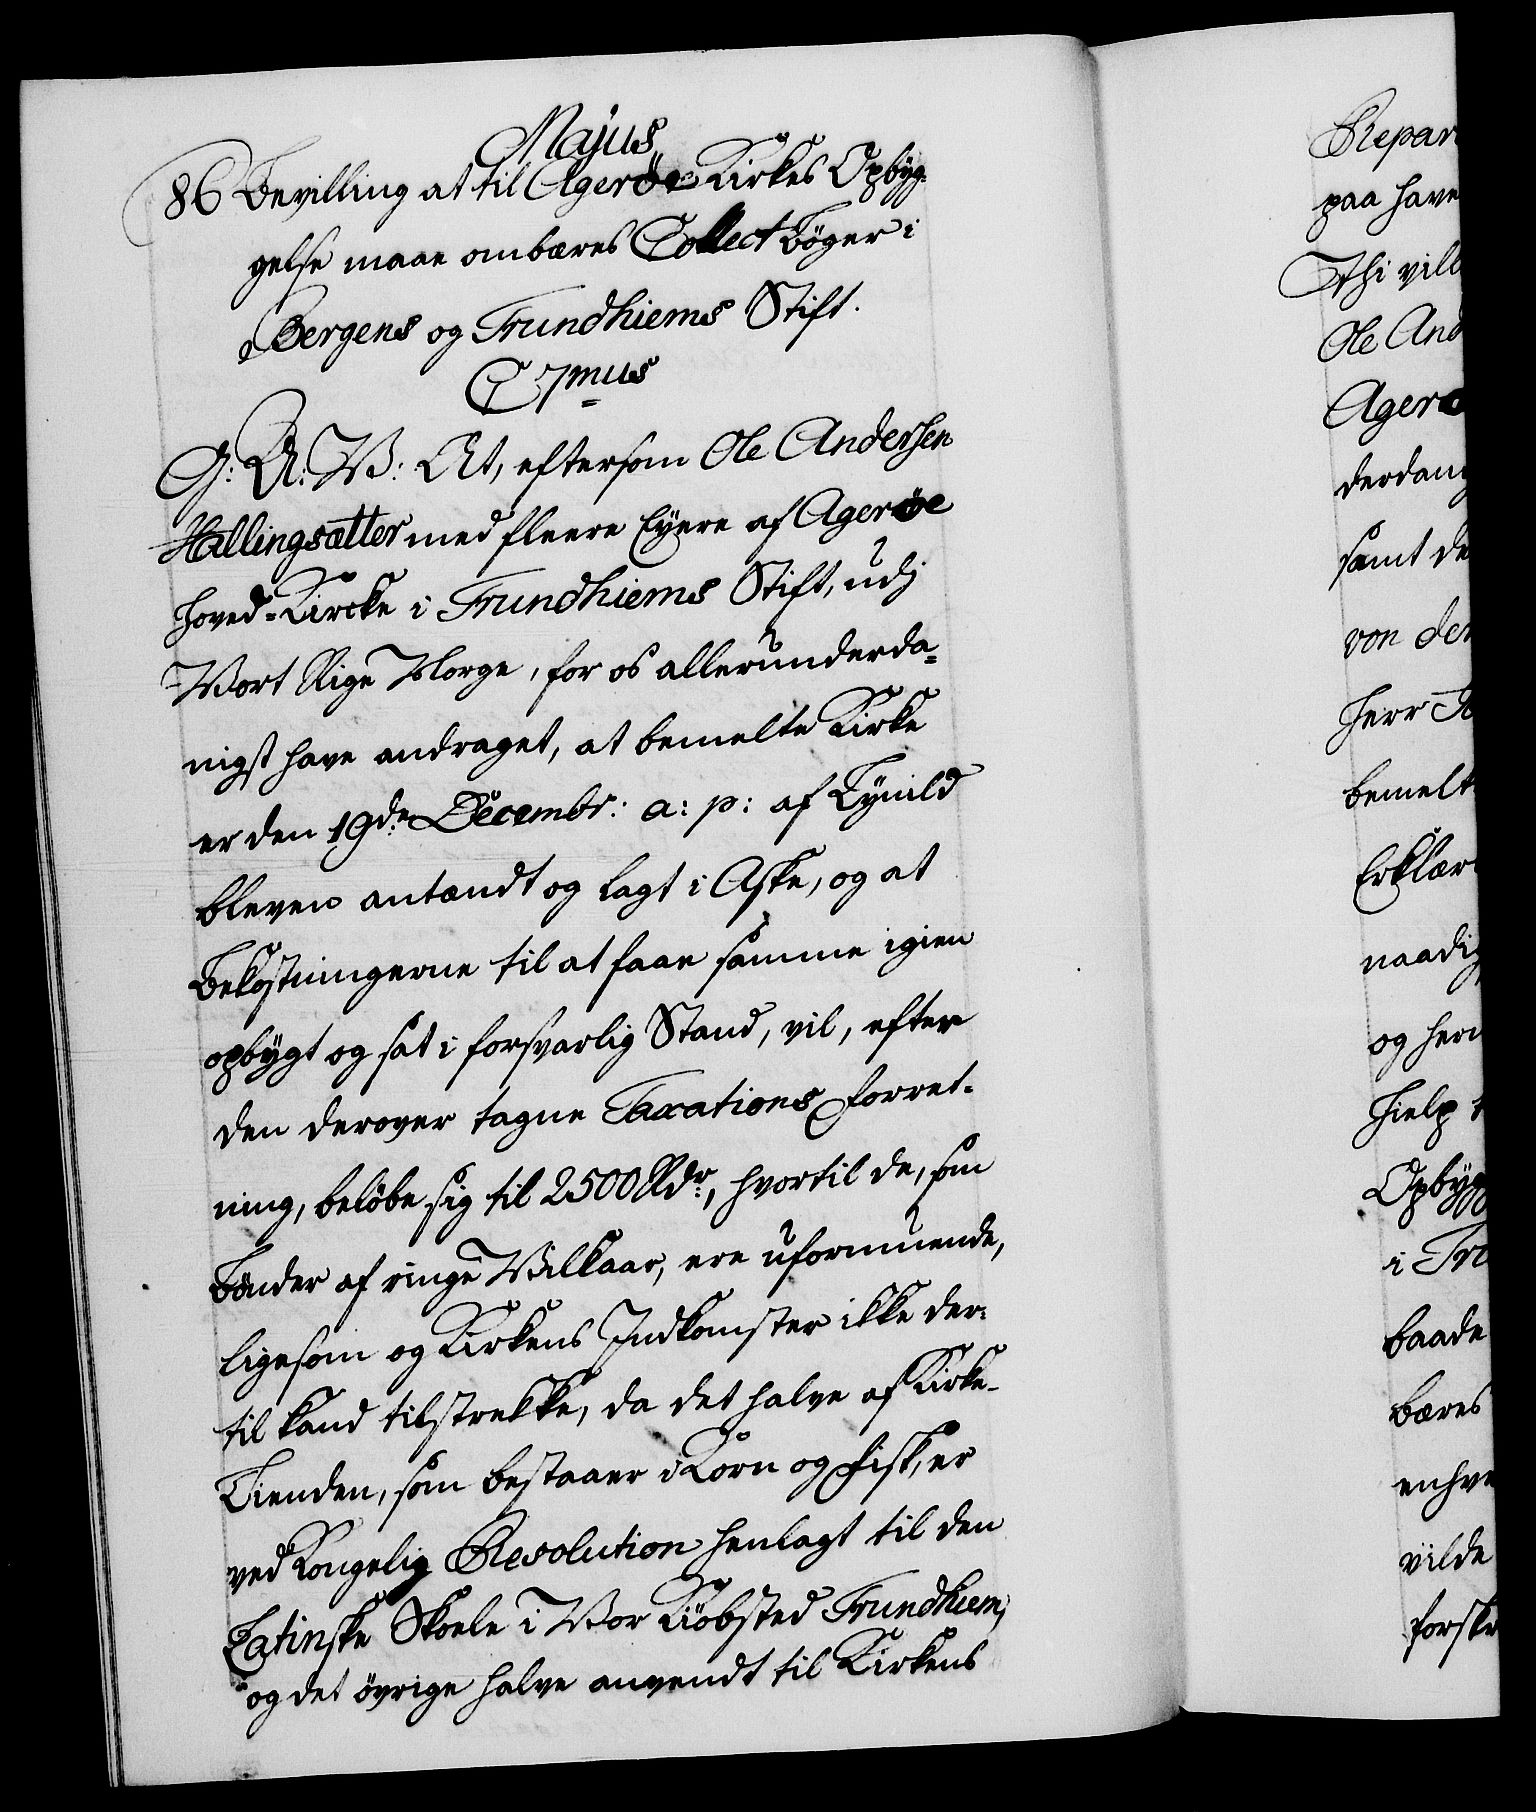 Majus
86 Bevilling at til Agerøe Kirkes Opbyg-
gelse maae ombæres Collect Bøger i
Bergens og Trundhiems Stift.
C 7mus
G: A: V: At, eftersom Ole Andersen
Hallingsætter med fleere Eyere af Agerøe
Hoved-Kircke i Trundhiems Stift, udj
Vort Rige Norge, for os allerunderda-
nigst have andraget, at bemelte Kirke
er den 19de Decembr: a: p: af Lynild
bleven antændt og lagt i Aske, og at
Bekostningerne til at faae samme igien
opbygt og sat i forsvarlig Stand, vil, efter
den derover tagne Taxations Forret-
ning, beløbe sig til 2500 Rdr, hvortil de, som
Bønder af ringe Vilkaar, ere uformuende,
ligesom og Kirkens Indkomster ikke der-
til kand tilstrekke, da det halve af Kirke-
Tienden, som bestaaer i Korn og Fisk, er
ved Kongelig Resolution henlagt til den
Latinske Skoele i Vor Kiöbsted Trundhiem,
og det övrige halve anvendt til Kirkens
Repar
paa have
Thi vil
Ole And
Agerø
derdanig
samt de
von der
Herr
bemelt
Erklær
naadig
og her
Hielp
Opbyg
i Tru
baade
bæres
enhve
vilde
forskr